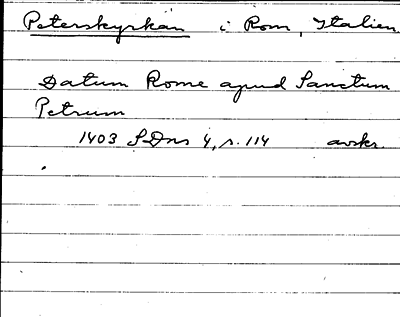 Peterskyrkan i Rom, Italien
Datum Rome apud Sanctum
Petrum
1403 SDns 4, s. 114 avskr.